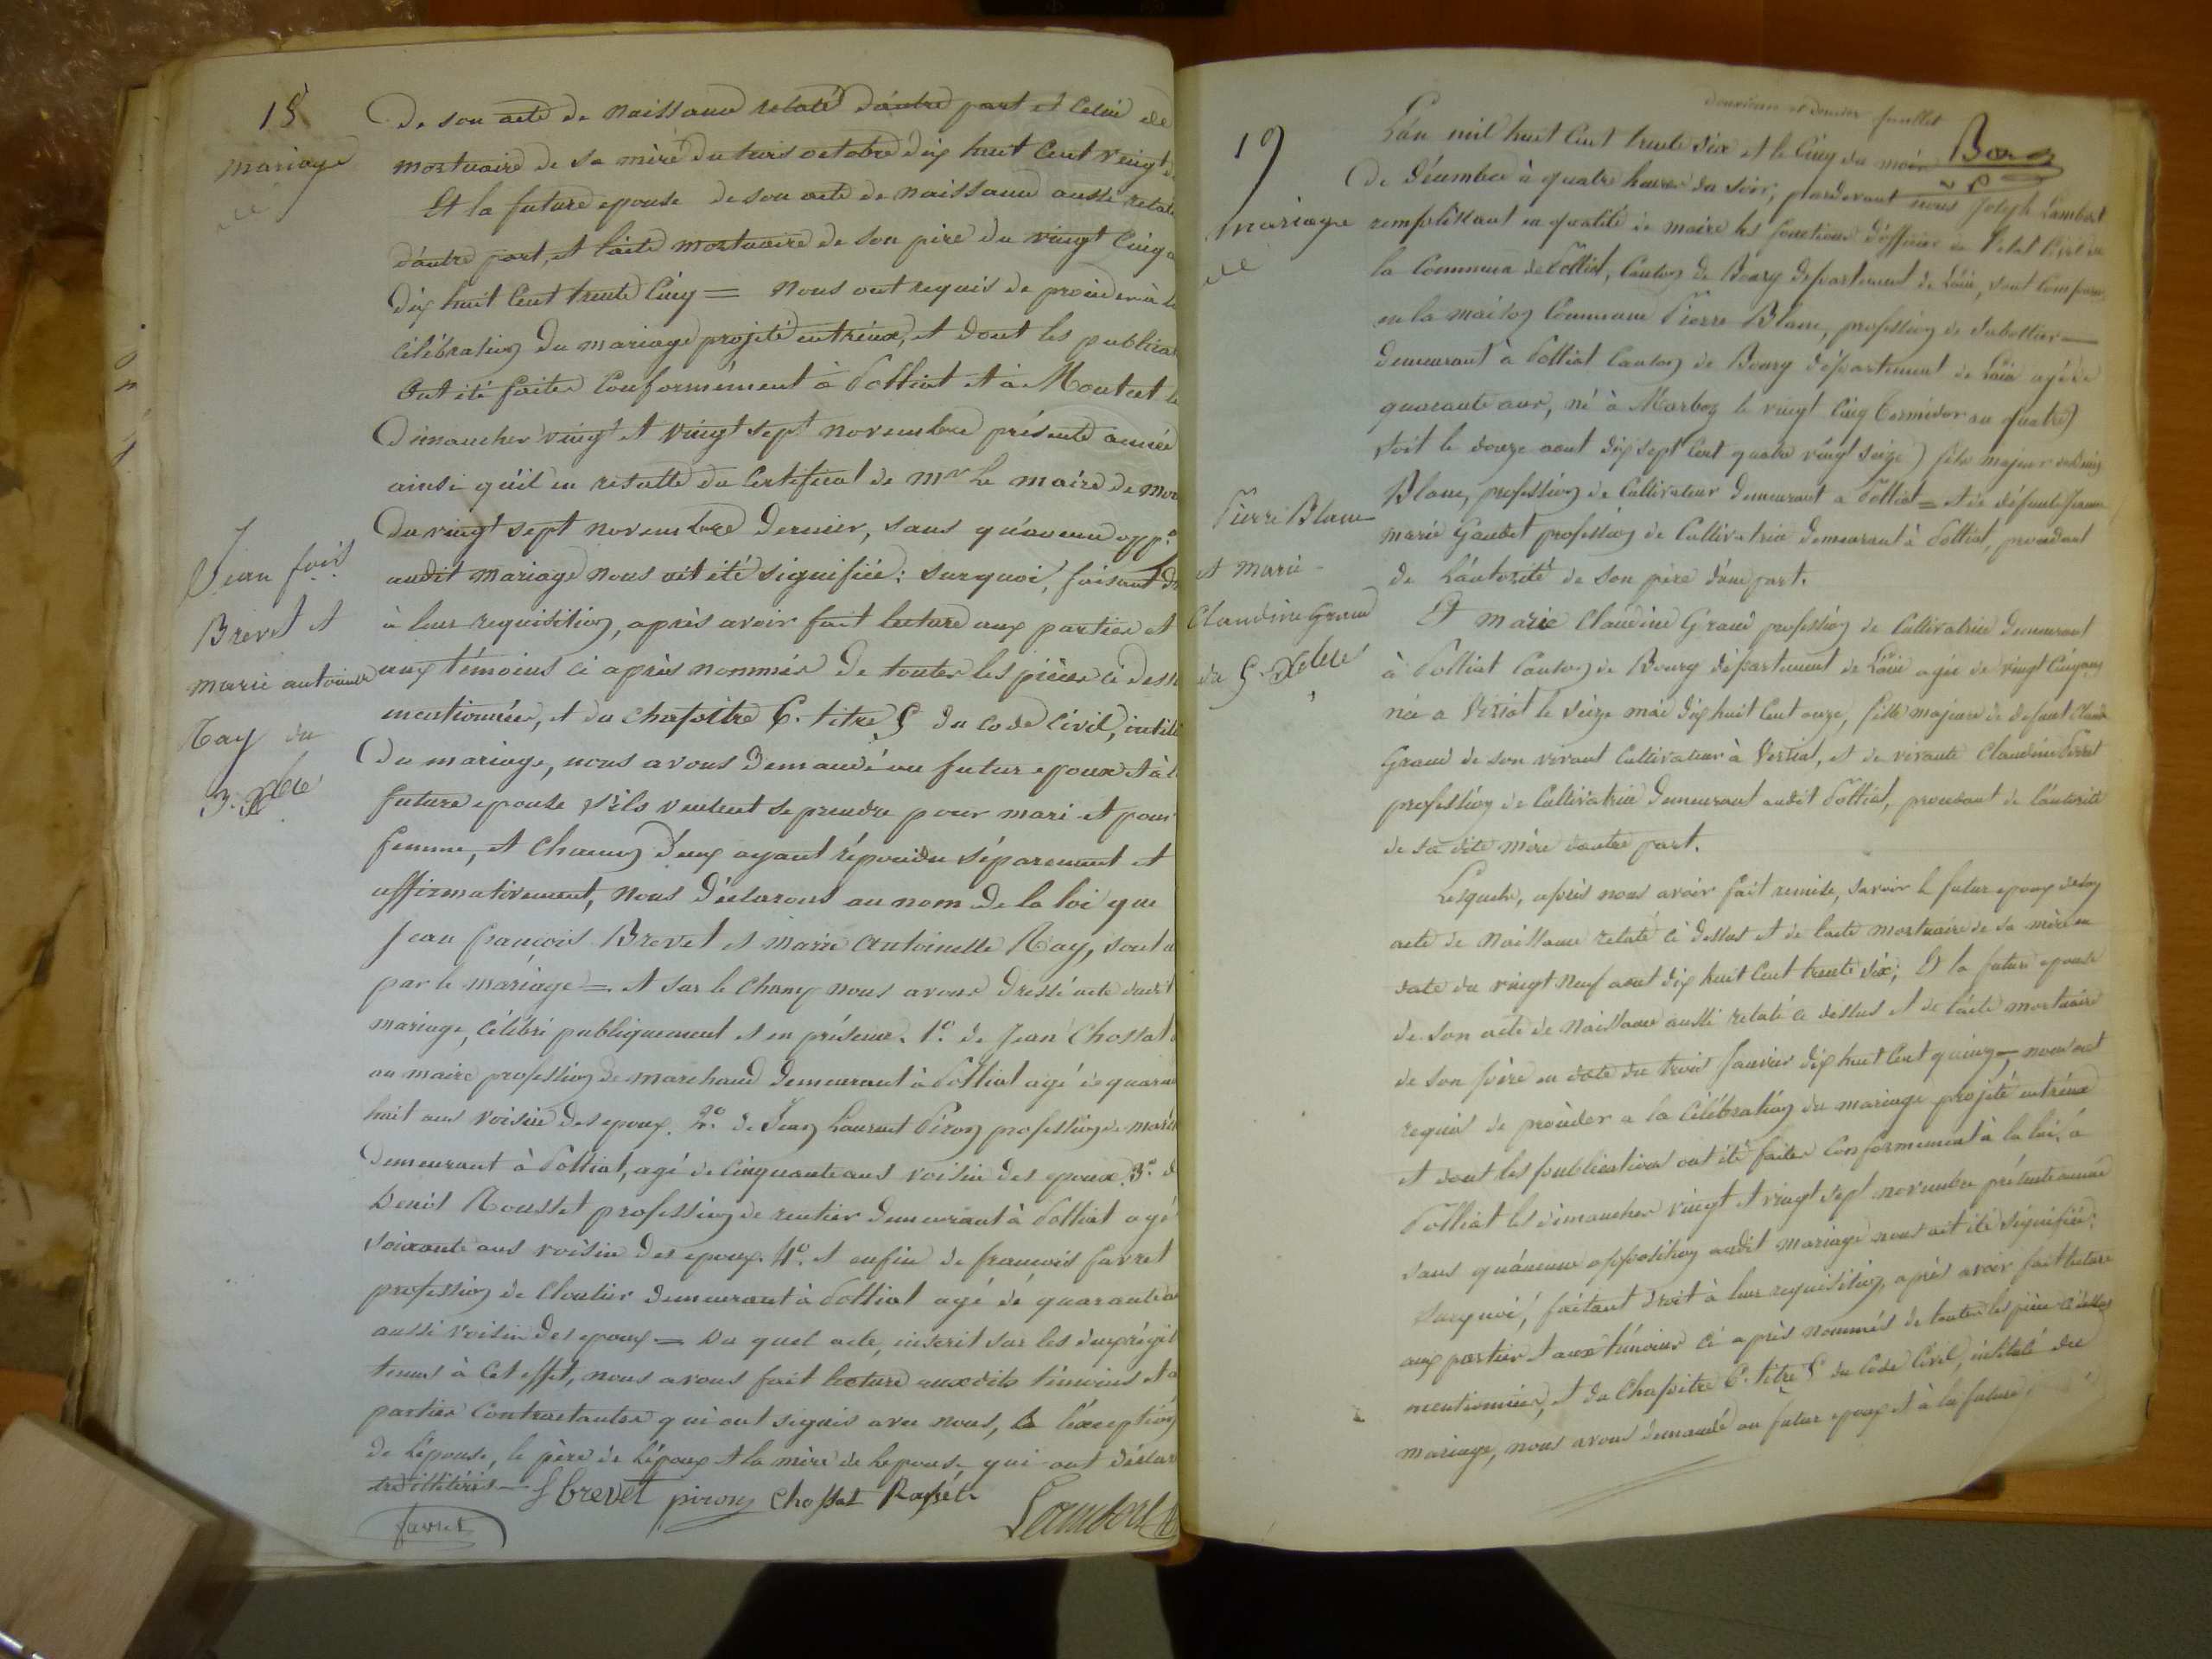 18
mariage
Jean fois
Brevet et
marie antoinette
Ray du
3. Xbre
de son acte de naissance relaté d'autre part et celui de
mortuaire de sa mère du trois octobre dix huit cent vingt
Et la future epouse de son acte de naissance aussi relaté
d'autre part, et l'acte mortuaire de son père du vingt cinq
dix huit cent trente cinq = nous ont requis de proceder à la
célébration du mariage projeté entr'eux, et dont les publicat
ont été faites conformément à Polliat et à Montcet le
Dimanches vingt et vingt sept novembre présente année
ainsi qu'il en resulte du certificat de Mr le maire de Mon
du vingt sept novembre dernier, sans qu'aucune opp.
audit mariage nous ait été signifiée: surquoi, faisant dr
à leur requisition, après avoir fait lecture aux parties et
aux témoins ci après nommés de toutes les pièces ci dess
mentionnées, et du chapitre 6. titre 5 du code Civil, intit
Du mariage, nous avons demandé au futur epoux et à l
future epouse s'ils veulent se prendre pour mari et pour
femme, et chacun d'eux ayant répondu séparement et
affirmativement, nous déclarons au nom de la loi que
Jean françois Brevet et marie antoinette Ray, sont u
par le mariage = et sur le champ nous avons dressé acte dudit
mariage, célébré publiquement et en présence. 1º. de Jean Chossat
au maire profession de marchand demeurant à Polliat agé de quaran
huit ans voisin des epoux. 2º. de Jean Laurent Piron profession de maré
demeurant à Polliat, agé de cinquante ans voisin des epoux. 3º. d
Benoit Rousset profession de rentier demeurant à Polliat agé
soixante ans voisin des epoux. 4º. et enfin de francois favret
profession de cloutier demeurant à Polliat agé de quarante a
aussi voisin des epoux = Du quel acte, inscrit sur les deux régis
tenus à cet effet, nous avons fait lecture auxdits témoins et a
parties contractantes qui ont signés avec nous, à l'exception
de l'épouse, le père de l'époux et la mère de l'epouse qui ont déclar
illétérés — f brevet piron Chossat Rousset
favret Lambert
deuxieme et dernier feuillet
Borg
19
mariage
Pierre Blanc
et marie
Claudine Grand
du 5. Xbre
L'an mil huit cent trente six et le cinq du mois
De Décembre à quatre heures du soir, pardevant nous Joseph Lambert
remplissant en qualité de maire les fonctions d'officier de l'etat Civil de
la commune de Polliat, canton de Bourg département de l'ain, sont comparus
en la maison commune Pierre Blanc, profession de sabottier —
demeurant à Polliat canton de Bourg département de l'ain agé de
quarante ans, né à Marboz le vingt cinq termidor an quatre)
soit le douze aout dix sept cent quatre vingt seize) fils majeur de Denis
Blanc, profession de cultivateur demeurant a Polliat = et de défunte Jeanne
marie Gaudet profession de cultivatrice demeurant à Polliat, procedant
de l'autorité de son père d'une part.
Et marie Claudine Grand profession de cultivatrice demeurant
à Polliat canton de Bourg département de l'ain agée de vingt cinq ans
née a Viriat le seize mai dix huit cent onze, fille majeure de defunt Claude
Grand de son vivant cultivateur à Viriat, et de vivante Claudine
profession de cultivatrice demeurant audit Polliat, procedant de l'autorité
de sa dite mère d'autre part.
Lesquels, après nous avoir fait remise, savoir le futur epoux de son
acte de naissance relaté ci dessus et de l'acte mortuaire de sa mère en
date du vingt neuf aout dix huit cent trente six; Et la future epouse
de son acte de naissance aussi relaté ci dessus et de l'acte mortuaire
de son père en date du trois Janvier dix huit cent quinze —, nous ont
requis de procéder a la célébration du mariage projeté entr'eux
et dont les publications ont été faites conformement à la loi, à
Polliat les dimanches vingt et vingt sept novembre présente année
sans qu'aucune opposition audit mariage nous ait été signifiée;
surquoi, faisant droit à leur requisition, après avoir fait lecture
aux parties et aux témoins ci après nommés de toutes les pièces ci dessus
mentionnées, et du chapitre 6. titre 5 du Code Civil, intitulé du
mariage, nous avons demandé au futur epoux et à la future